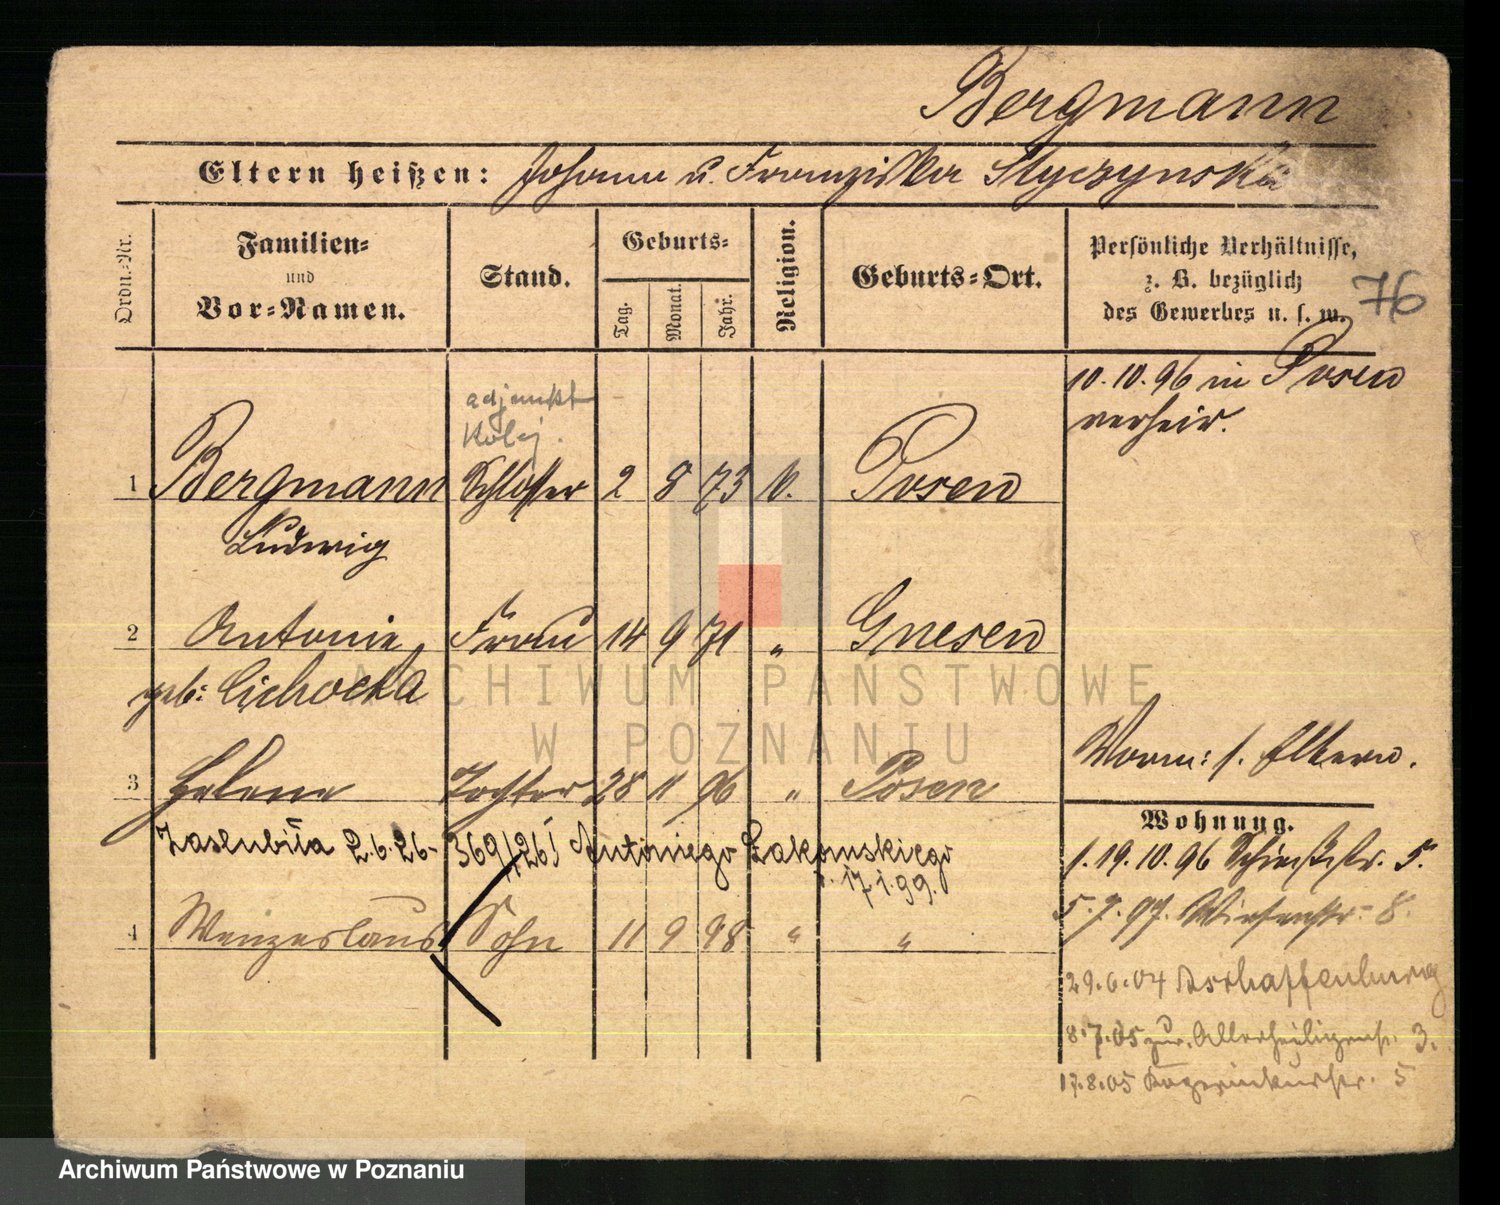 Bergmann
Eltern heißen: Johann u. Franziska Styczynska
Ordn.-Nr.
Familien- und Vor-Namen.
Stand.
Geburts-
Tag. Monat. Jahr.
Religion.
Geburts-Ort.
Persönliche Verhältnisse,
z. B. bezüglich
des Gewerbes u. s. w.
76
10.10.96 in Posen
verheir.
adjunkt
Kolej.
1 Bergmann Schlosser 2 8 73 k. Posen
Ludwig
2 Antonie Frau 14 9 71 " Gnesen
geb: Cichocka
3 Helene Tochter 28 11 96 " Posen
Zaslubiła 2.6.26- 369/26! Antoniego Łakomskiego
17.1.99.
4 Wenzeslaus Sohn 11 9 98 " "
Vorm: s. Eltern.
Wohnung.
1.19.10.96 Schießstr. 5.
5.7.97. Wiesenstr. 8.
29.6.04 Aschaffenburg
8.7.05 zur. Allerheiligenstr. 3.
17.8.05 5
ARCHIWUM PAŃSTWOWE
W POZNANIU
Archiwum Państwowe w Poznaniu